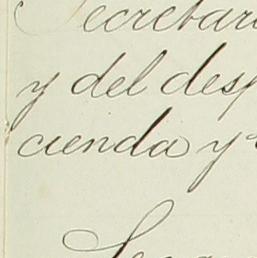 Secretari
y del desp
cienda y